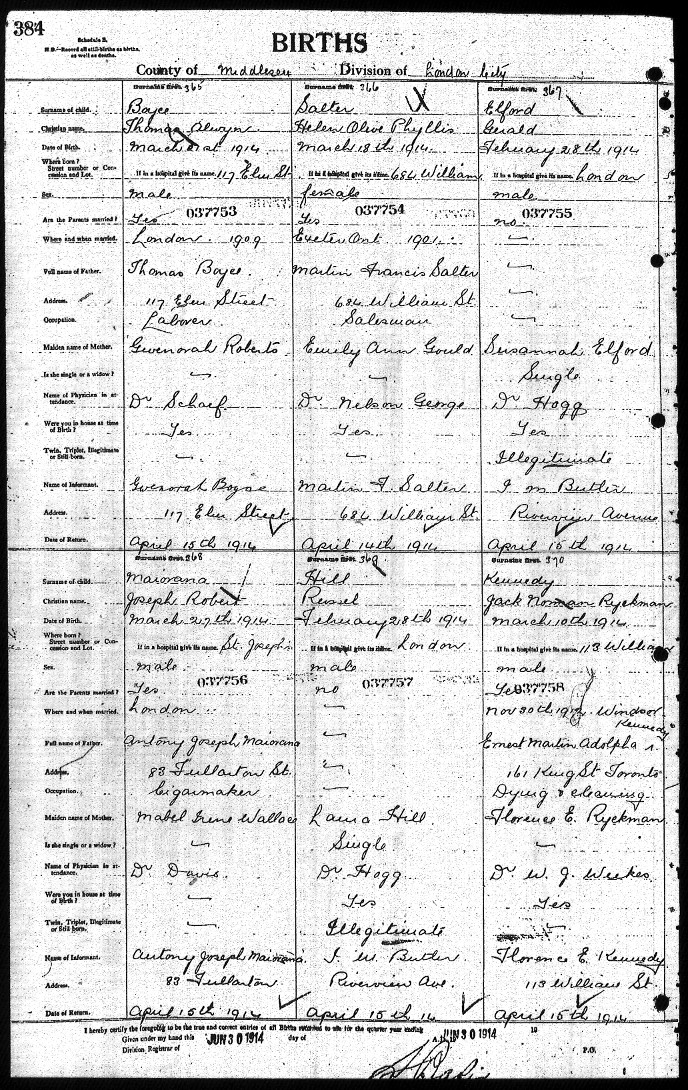 384
Schedule B.
N.B.—Record all still-births as births, as well as deaths.
BIRTHS
County of Middlesex Division of London City
Surname first. 365 Surname first. 366 Surname first. 367
Surname of child. Boyce Salter Elford
Christian name. Thomas Alwyn Helen Olive Phyllis Gerald
Date of Birth. March 21st 1914 March 18th 1914 February 28th 1914
Where born?
Street number or Concession and Lot. If in a hospital give its name. 117 Elm St If in a hospital give its name. 684 William If in a hospital give its name. London
Sex. male female male
037753 037754 037755
Are the Parents married? Yes Yes no
Where and when married. London 1909 Exeter Ont 1901 —
Full name of Father. Thomas Boyce Martin Francis Salter —
Address. 117 Elm Street 684 William St —
Occupation. Laborer Salesman —
Maiden name of Mother. Gwenorah Roberts Emily Ann Gould Susannah Elford
Is she single or a widow? — — Single
Name of Physician in attendance. Dr Schaef Dr Nelson George Dr Hogg
Were you in house at time of Birth? Yes Yes Yes
Twin, Triplet, Illegitimate or Still born. — — Illegitimate
Name of Informant. Gwenorah Boyce Martin F. Salter I M Butler
Address. 117 Elm Street 684 William St. Riverview Avenue
Date of Return. April 15th 1914 April 14th 1914 April 15th 1914
Surname first. 368 Surname first. 369 Surname first. 370
Surname of child. Maiorana Hill Kennedy
Christian name. Joseph Robert Russel Jack Norman Ryckman
Date of Birth. March 27th 1914 February 28th 1914 March 10th 1914
Where born?
Street number or Concession and Lot. If in a hospital give its name. St. Joseph's If in a hospital give its name. London If in a hospital give its name. 113 William
Sex. male male male
037756 037757 037758
Are the Parents married? Yes no Yes
Where and when married. London — Nov 30th Windsor
Full name of Father. Antony Joseph Maiorana — Ernest Martin Adolpha Kennedy
Address. 83 Fullarton St. — 161 King St Toronto
Occupation. Cigarmaker — Dying & cleaning
Maiden name of Mother. Mabel Irene Wallace Laura Hill Florence E. Ryckman
Is she single or a widow? — Single —
Name of Physician in attendance. Dr Davis Dr Hogg Dr W. J. Weekes
Were you in house at time of Birth? — Yes Yes
Twin, Triplet, Illegitimate or Still born. — Illegitimate —
Name of Informant. Antony Joseph Maiorana I. M. Butler Florence E. Kennedy
Address. 83 Fullarton Riverview Ave. 113 William St.
Date of Return. April 15th 1914 April 15th 14 April 15th 1914
I hereby certify the foregoing to be the true and correct entries of all Births recorded to me for the quarter year ending 19
Given under my hand this JUN 30 1914 day of A.D. JUN 30 1914
Division Registrar of P.O.